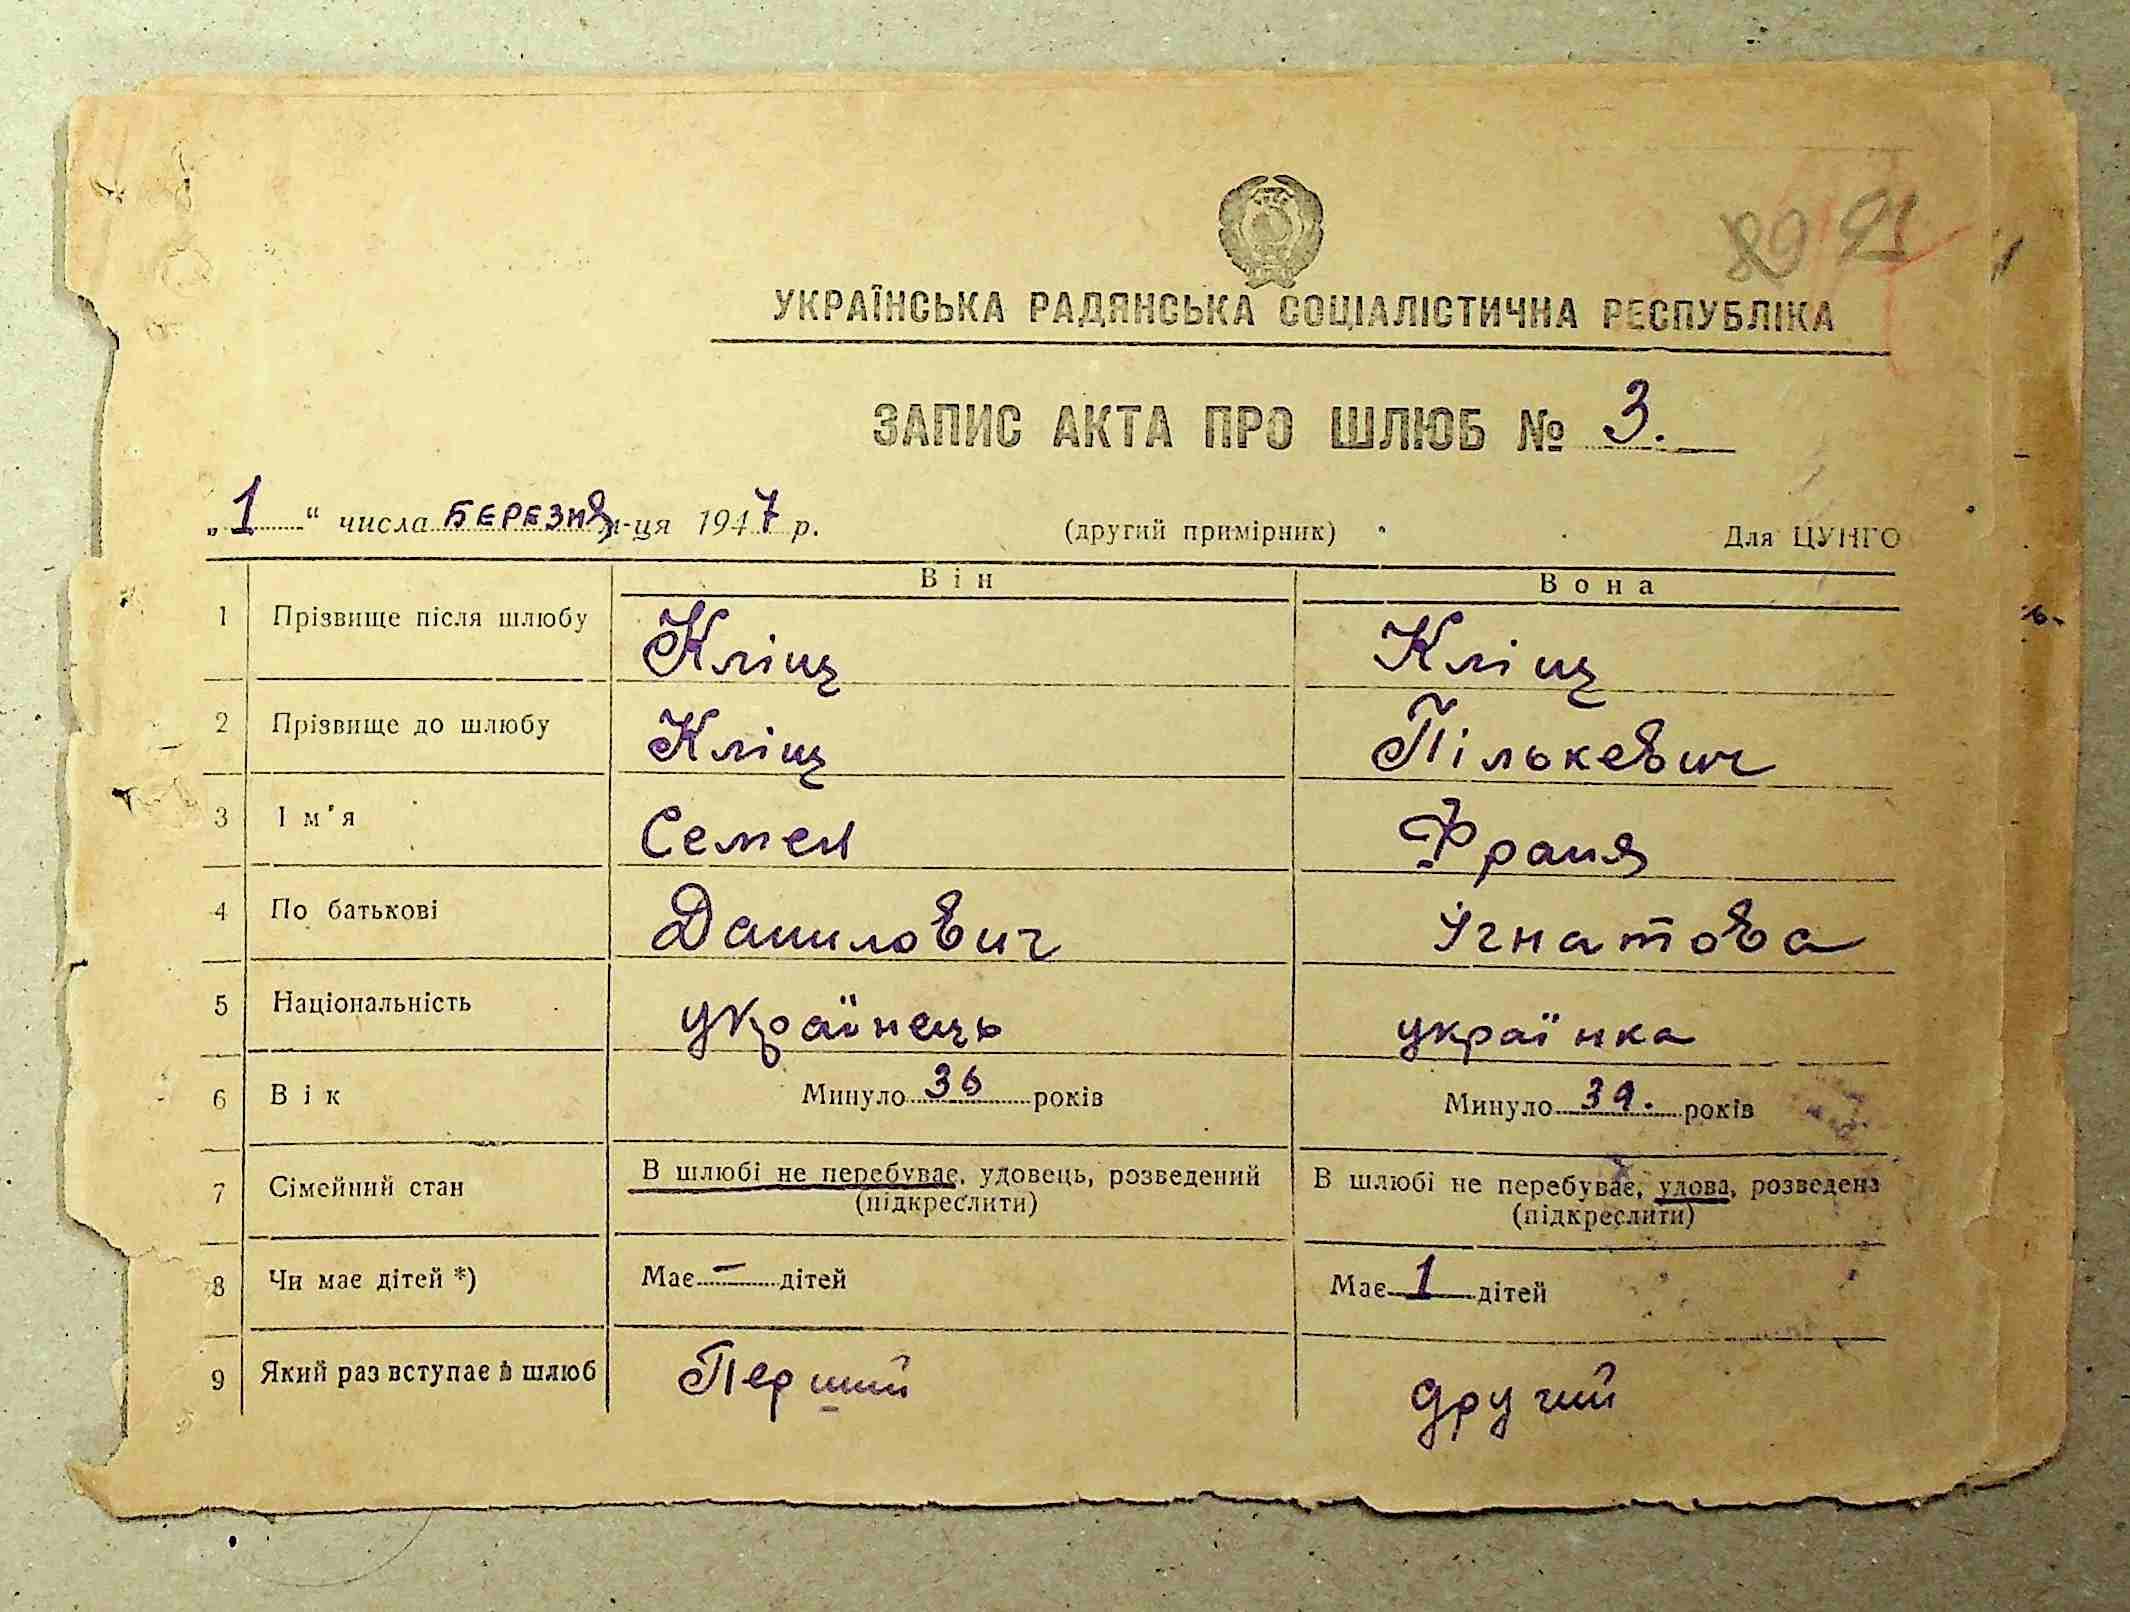 89 91
УКРАЇНСЬКА РАДЯНСЬКА СОЦІАЛІСТИЧНА РЕСПУБЛІКА
ЗАПИС АКТА ПРО ШЛЮБ № 3.
„1“ числа БЕРЕЗНЯ м-ця 1947 р. (другий примірник) Для ЦУНГО
Він Вона
1 Прізвище після шлюбу Кліщ Кліщ
2 Прізвище до шлюбу Кліщ Пількевич
3 Ім'я Семен Франя
4 По батькові Данилович Ігнатова
5 Національність українець українка
6 Вік Минуло 36 років Минуло 39. років
7 Сімейний стан В шлюбі не перебуває, удовець, розведений В шлюбі не перебуває, удова, розведена
(підкреслити) (підкреслити)
8 Чи має дітей *) Має – дітей Має 1 дітей
9 Який раз вступає в шлюб Перший другий